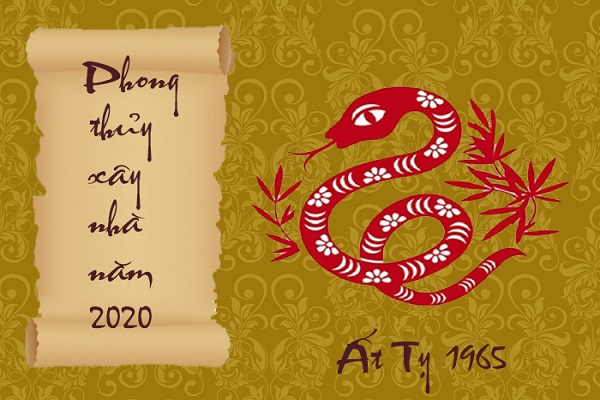 Phong
thủy
xây
nhà
năm
2020
Ất Tỵ 1965